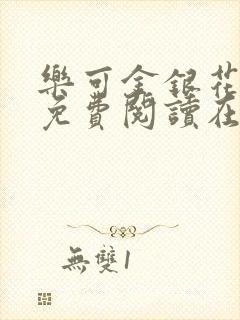 樂可金銀花
免費閱讀在
無雙1